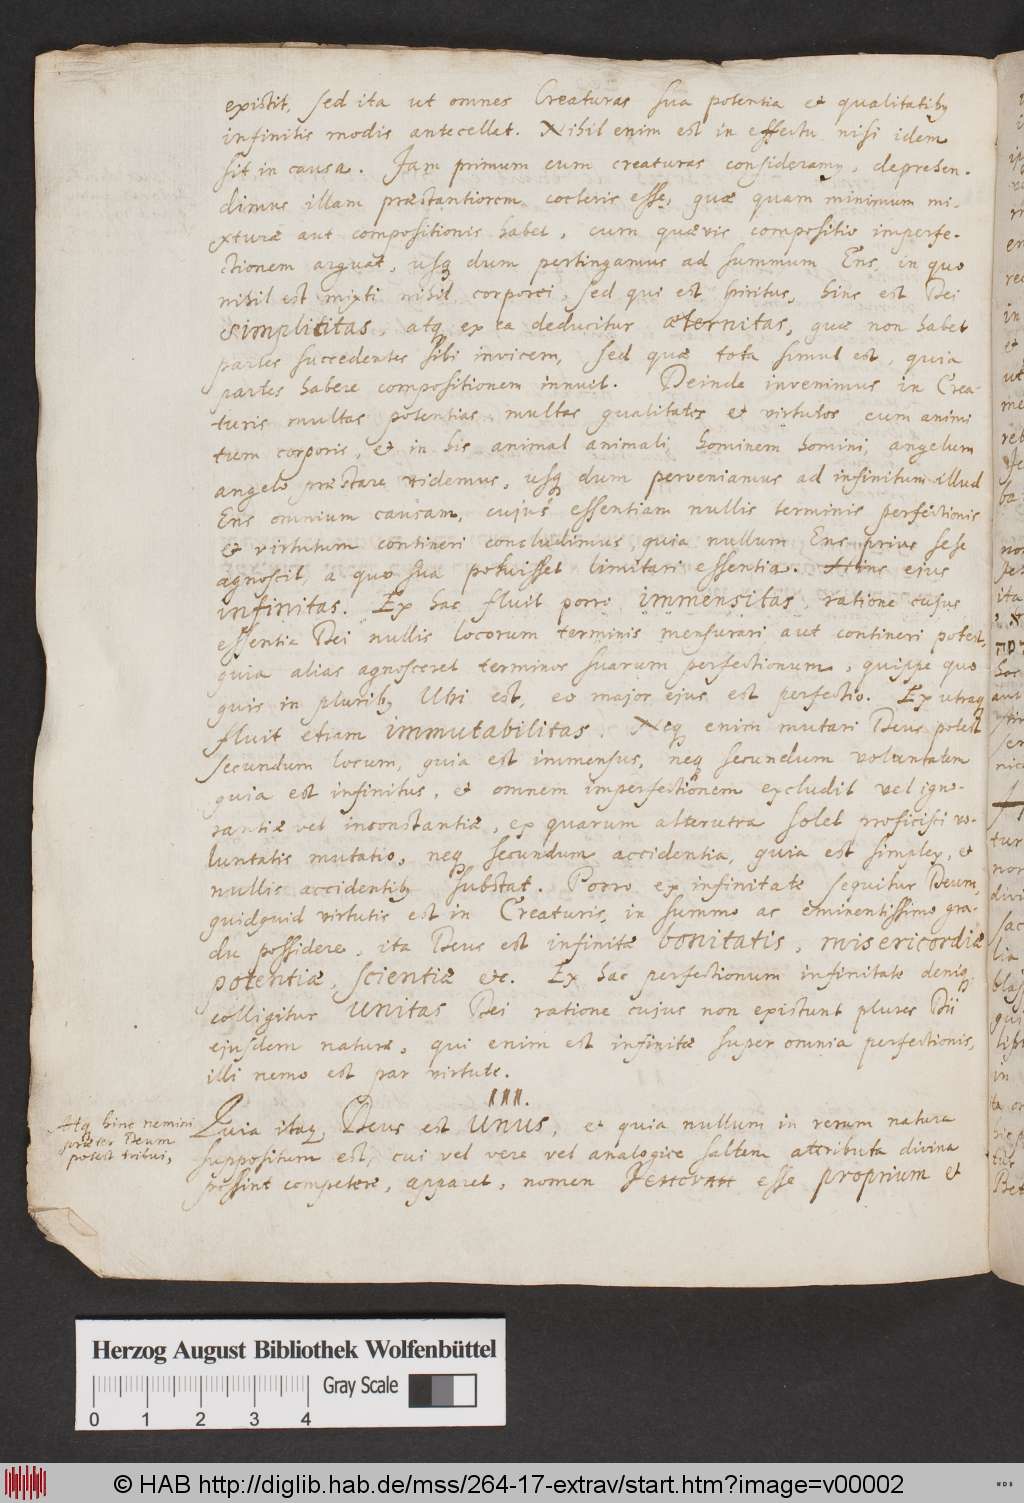 existit, sed ita ut omnes Creaturas sua potentia et qualitatibꝫ
infinitis modis antecellat. Nihil enim est in effectu nisi idem
sit in causa. Jam primum cum creaturas consideramꝰ, deprehen-
dimus illam præstantiorem cæteris esse, quæ quam minimum mi-
xturæ aut compositionis habet, cum quævis compositio imperfe-
ctionem arguat, usq dum pertingamus ad summum Ens, in quo
nihil est mixti nihil corporei, sed qui est spiritus, hinc est Dei
simplicitas, atq ex ea deducitur æternitas, quæ non habet
partes succedentes sibi invicem, sed quæ tota simul est, quia
partes habere compositionem innuit. Deinde invenimus in Crea-
turis multas potentias, multas qualitates et virtutes cum animi
tum corporis, et in his animal animali, hominem homini, angelum
angelo præstare videmus, usq dum perveniamus ad infinitum illud
Ens omnium causam, cujus essentiam nullis terminis perfectionis
et virtutum contineri concludimus, quia nullum Ens prius sese
agnoscit, a quo sua potuisset limitari essentia. Hinc ejus
infinitas. Ex hac fluit porro immensitas, ratione cujus
essentia Dei nullis locorum terminis mensurari aut contineri potest,
quia alias agnosceret terminos suarum perfectionum, quippe quo
quis in pluribꝫ Ubi est, eo major ejus est perfectio. Ex utraq
fluit etiam immutabilitas. Neq enim mutari Deus potest
secundum locum, quia est immensus, neq secundum voluntatem
quia est infinitus, et omnem imperfectionem excludit vel igno-
rantiæ vel inconstantiæ, ex quarum alterutra solet proficisci vo-
luntatis mutatio, neq secundum accidentia, quia est simplex, et
nullis accidentibꝫ substat. Porro ex infinitate sequitur Deum,
quidquid virtutis est in Creaturis, in summo ac eminentissimo gra-
du possidere, ita Deus est infinitæ bonitatis, misericordiæ
potentiæ, scientiæ etc. Ex hac perfectionum infinitate deniq
colligitur Unitas Dei ratione cujus non existunt plures Dii
ejusdem naturæ, qui enim est infinitæ super omnia perfectionis,
illi nemo est par virtute.
III.
Quia itaq Deus est Unus, et quia nullum in rerum natura
Atq hinc nemini
præter Deum
potest tribui,
suppositum est, cui vel vere vel analogice saltem attributa divina
possint competere, apparet, nomen Jehovah esse proprium et
Herzog August Bibliothek Wolfenbüttel
Gray Scale
0 1 2 3 4
© HAB http://diglib.hab.de/mss/264-17-extrav/start.htm?image=v00002